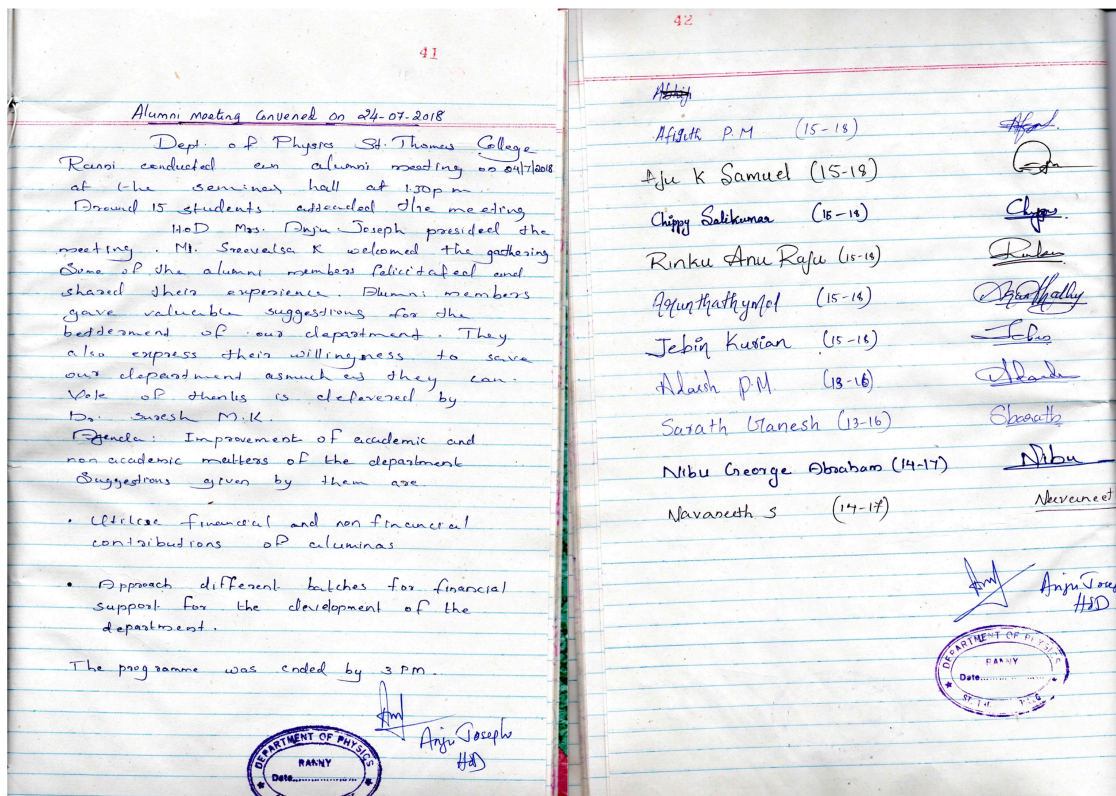 41
Alumni meeting Convened on 24-07-2018
Dept. of Physics St. Thomas College
Ranni conducted an alumni meeting on 04/7/2018
at the seminar hall at 1.30pm
Around 15 students attended the meeting
HOD Mrs. Anju Joseph presided the
meeting. Mr. Sreevalsa K welcomed the gathering
Some of the alumni members felicitated and
shared their experience Alumni members
gave valuable suggestions for the
betterment of our department. They
also express their willingness to save
our department asmuch as they can.
Vote of thanks is delevered by
Dr. Suresh M.K.
Agenda: Improvement of academic and
non academic matters of the department
Suggestions given by them are.
• Utilise financial and non financial
contributions of aluminas
• Approach different batches for financial
support for the development of the
department.
The programme was ended by 3 PM.
Anju Joseph
HOD
DEPARTMENT OF PHYSICS
RANNY
Date
42
Abhiji
P.M (15-18)
Aju K Samuel (15-18)
Chippy Salikumar (15-18) Chippy
Rinku Anu Raju (15-18) Rinku
Arunthathymol (15-18) Arunthathy
Jebin Kurian (15-18) Jebin
Adarsh P.M (13-16) Adarsh
Sarath Ganesh (13-16) Sbarath
Nibu George Abraham (14-17) Nibu
Navaneeth S (14-17) Navaneet
Anju Jose
HOD
DEPARTMENT OF PHYSICS
RANNY
Date